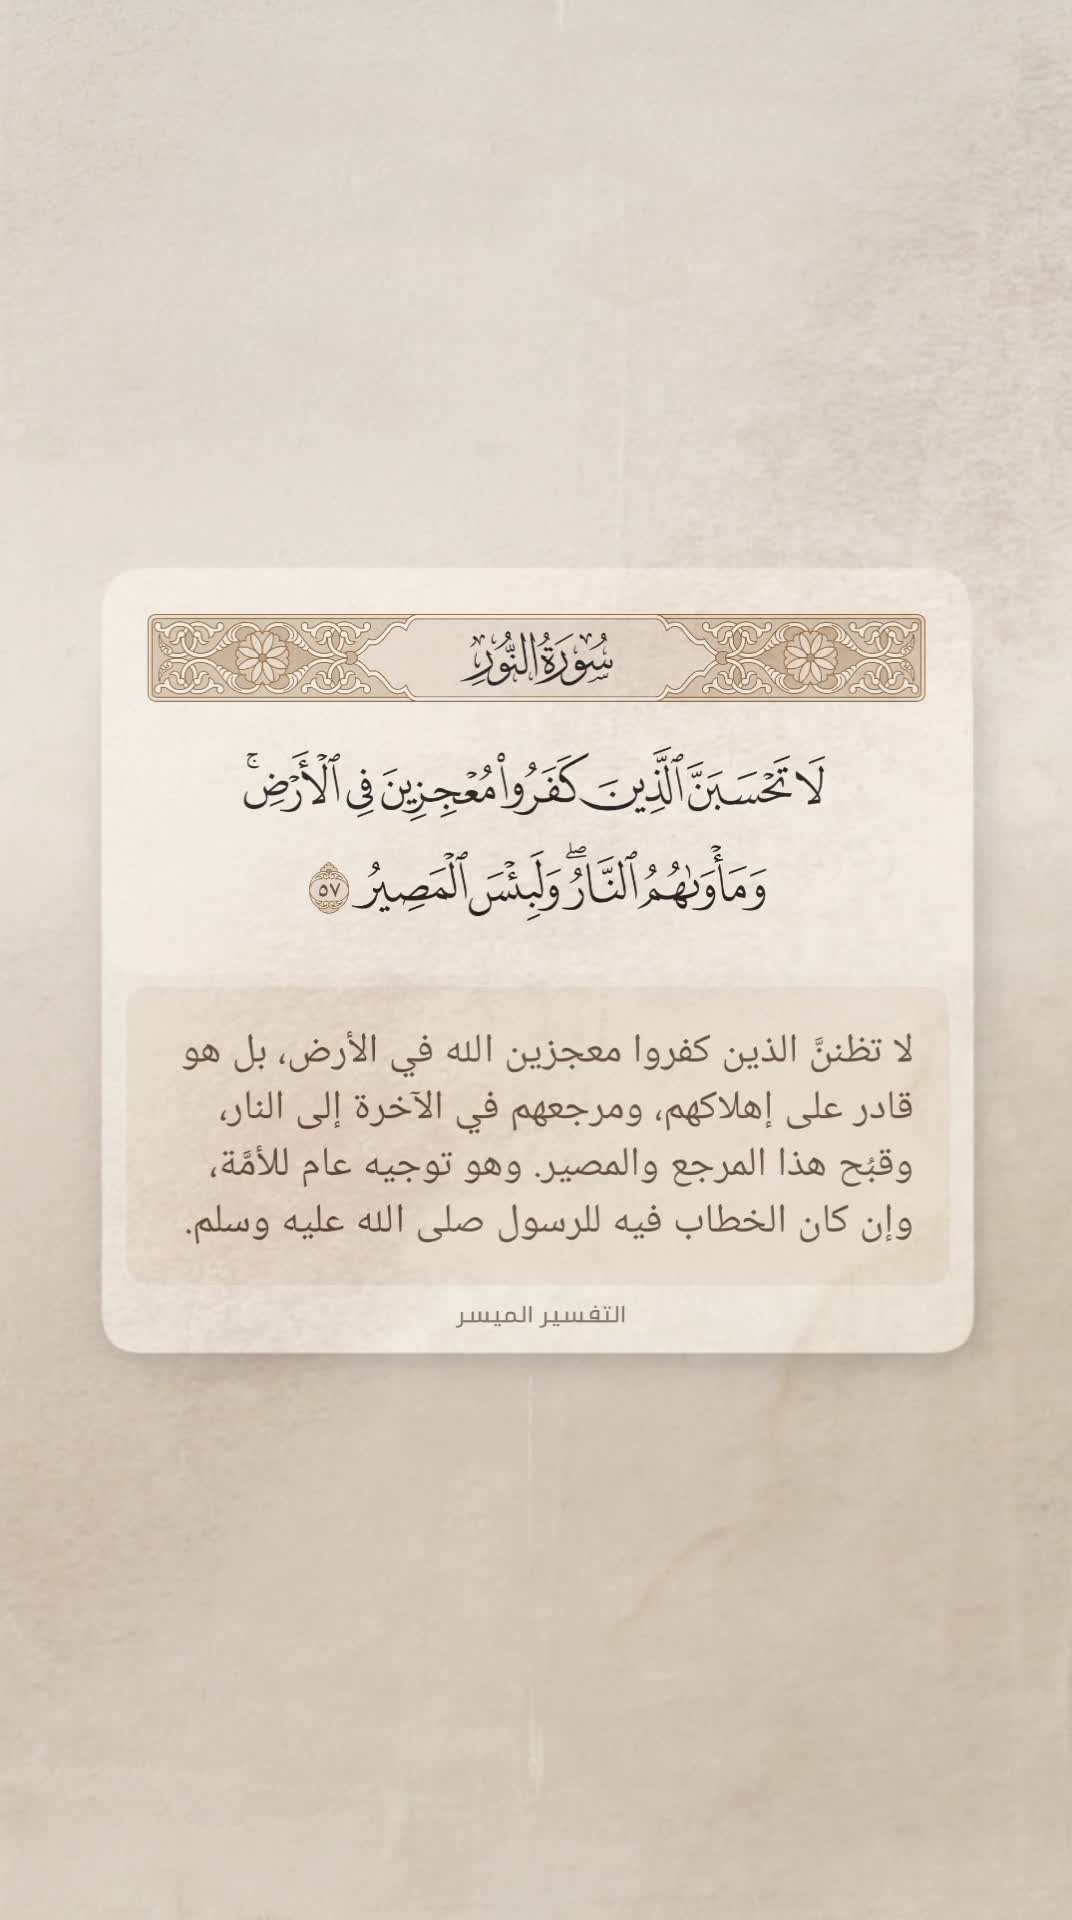 سُورَةُ النُّورِ
لَا تَحْسَبَنَّ ٱلَّذِينَ كَفَرُوا۟ مُعْجِزِينَ فِى ٱلْأَرْضِ ۚ
وَمَأْوَىٰهُمُ ٱلنَّارُ ۖ وَلَبِئْسَ ٱلْمَصِيرُ ٥٧
لا تظننَّ الذين كفروا معجزين الله في الأرض، بل هو
قادر على إهلاكهم، ومرجعهم في الآخرة إلى النار،
وقبُح هذا المرجع والمصير. وهو توجيه عام للأمَّة،
وإن كان الخطاب فيه للرسول صلى الله عليه وسلم.
التفسير الميسر